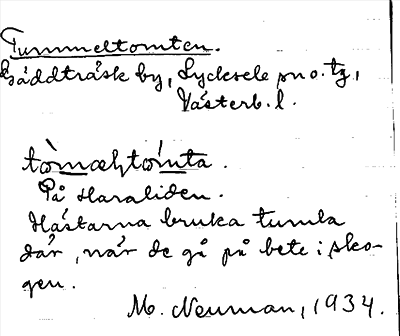 Tummeltomten.
Gäddträsk by, Lycksele sn o. tg,
Västerb. l.
tò̀mæltòmta.
På Haraliden.
Hästarna bruka tumla
där, när de gå på bete i sko-
gen.
M. Neuman, 1934.